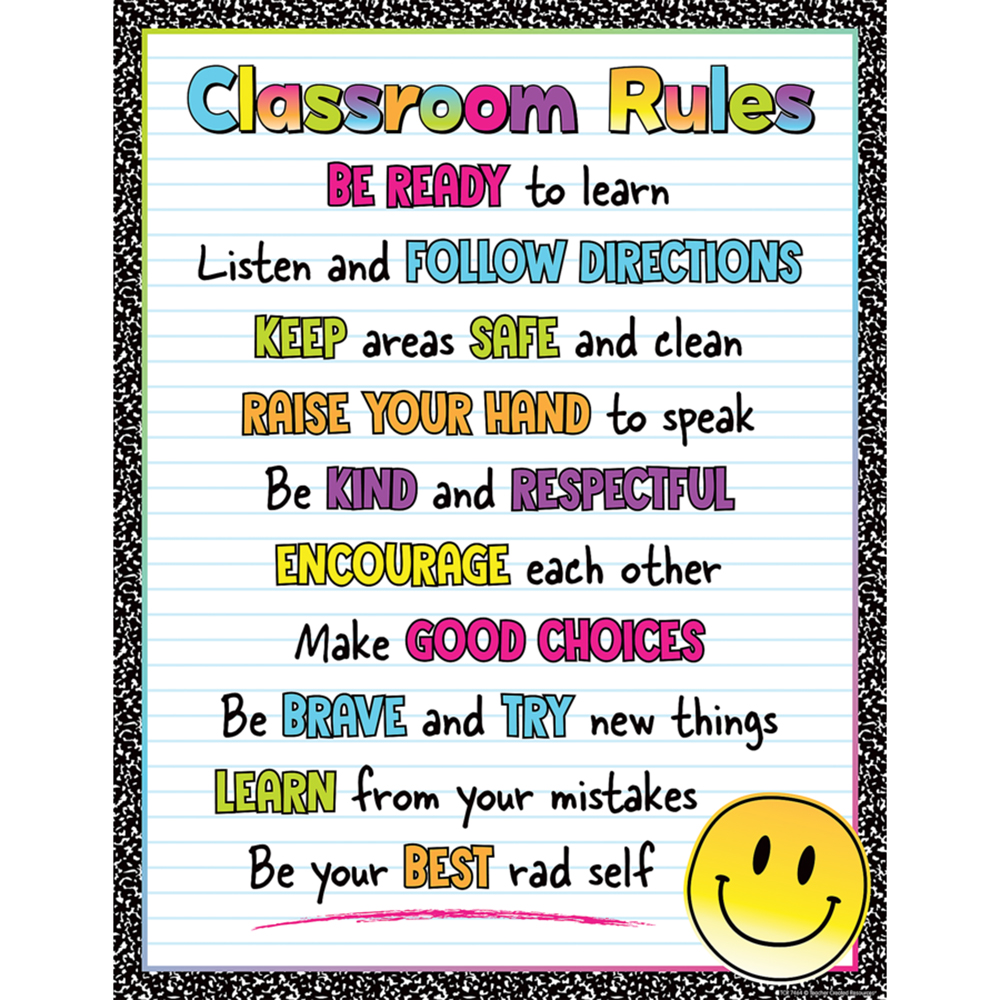 Classroom Rules
BE READY to learn
Listen and FOLLOW DIRECTIONS
KEEP areas SAFE and clean
RAISE YOUR HAND to speak
Be KIND and RESPECTFUL
ENCOURAGE each other
Make GOOD CHOICES
Be BRAVE and TRY new things
LEARN from your mistakes
Be your BEST rad self
TCR 7464 © Teacher Created Resources